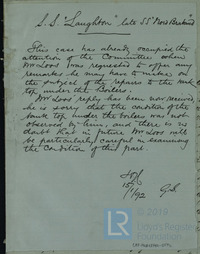 S.S. "Laughton" late SS "
This case has already occupied the
attention of the Committee when
Mr Loos was requested to offer any
remarks he may have to make on
the subject of the repairs to the tank
top under the Boilers.
Mr Loos reply has been now received
he is sorry that the condition of the
tank top under the boilers was not
observed by him, and there is no
doubt that in future Mr Loos will
be particularly careful in examining
the condition of this part.
© 2019
Lloyd's Register
Foundation